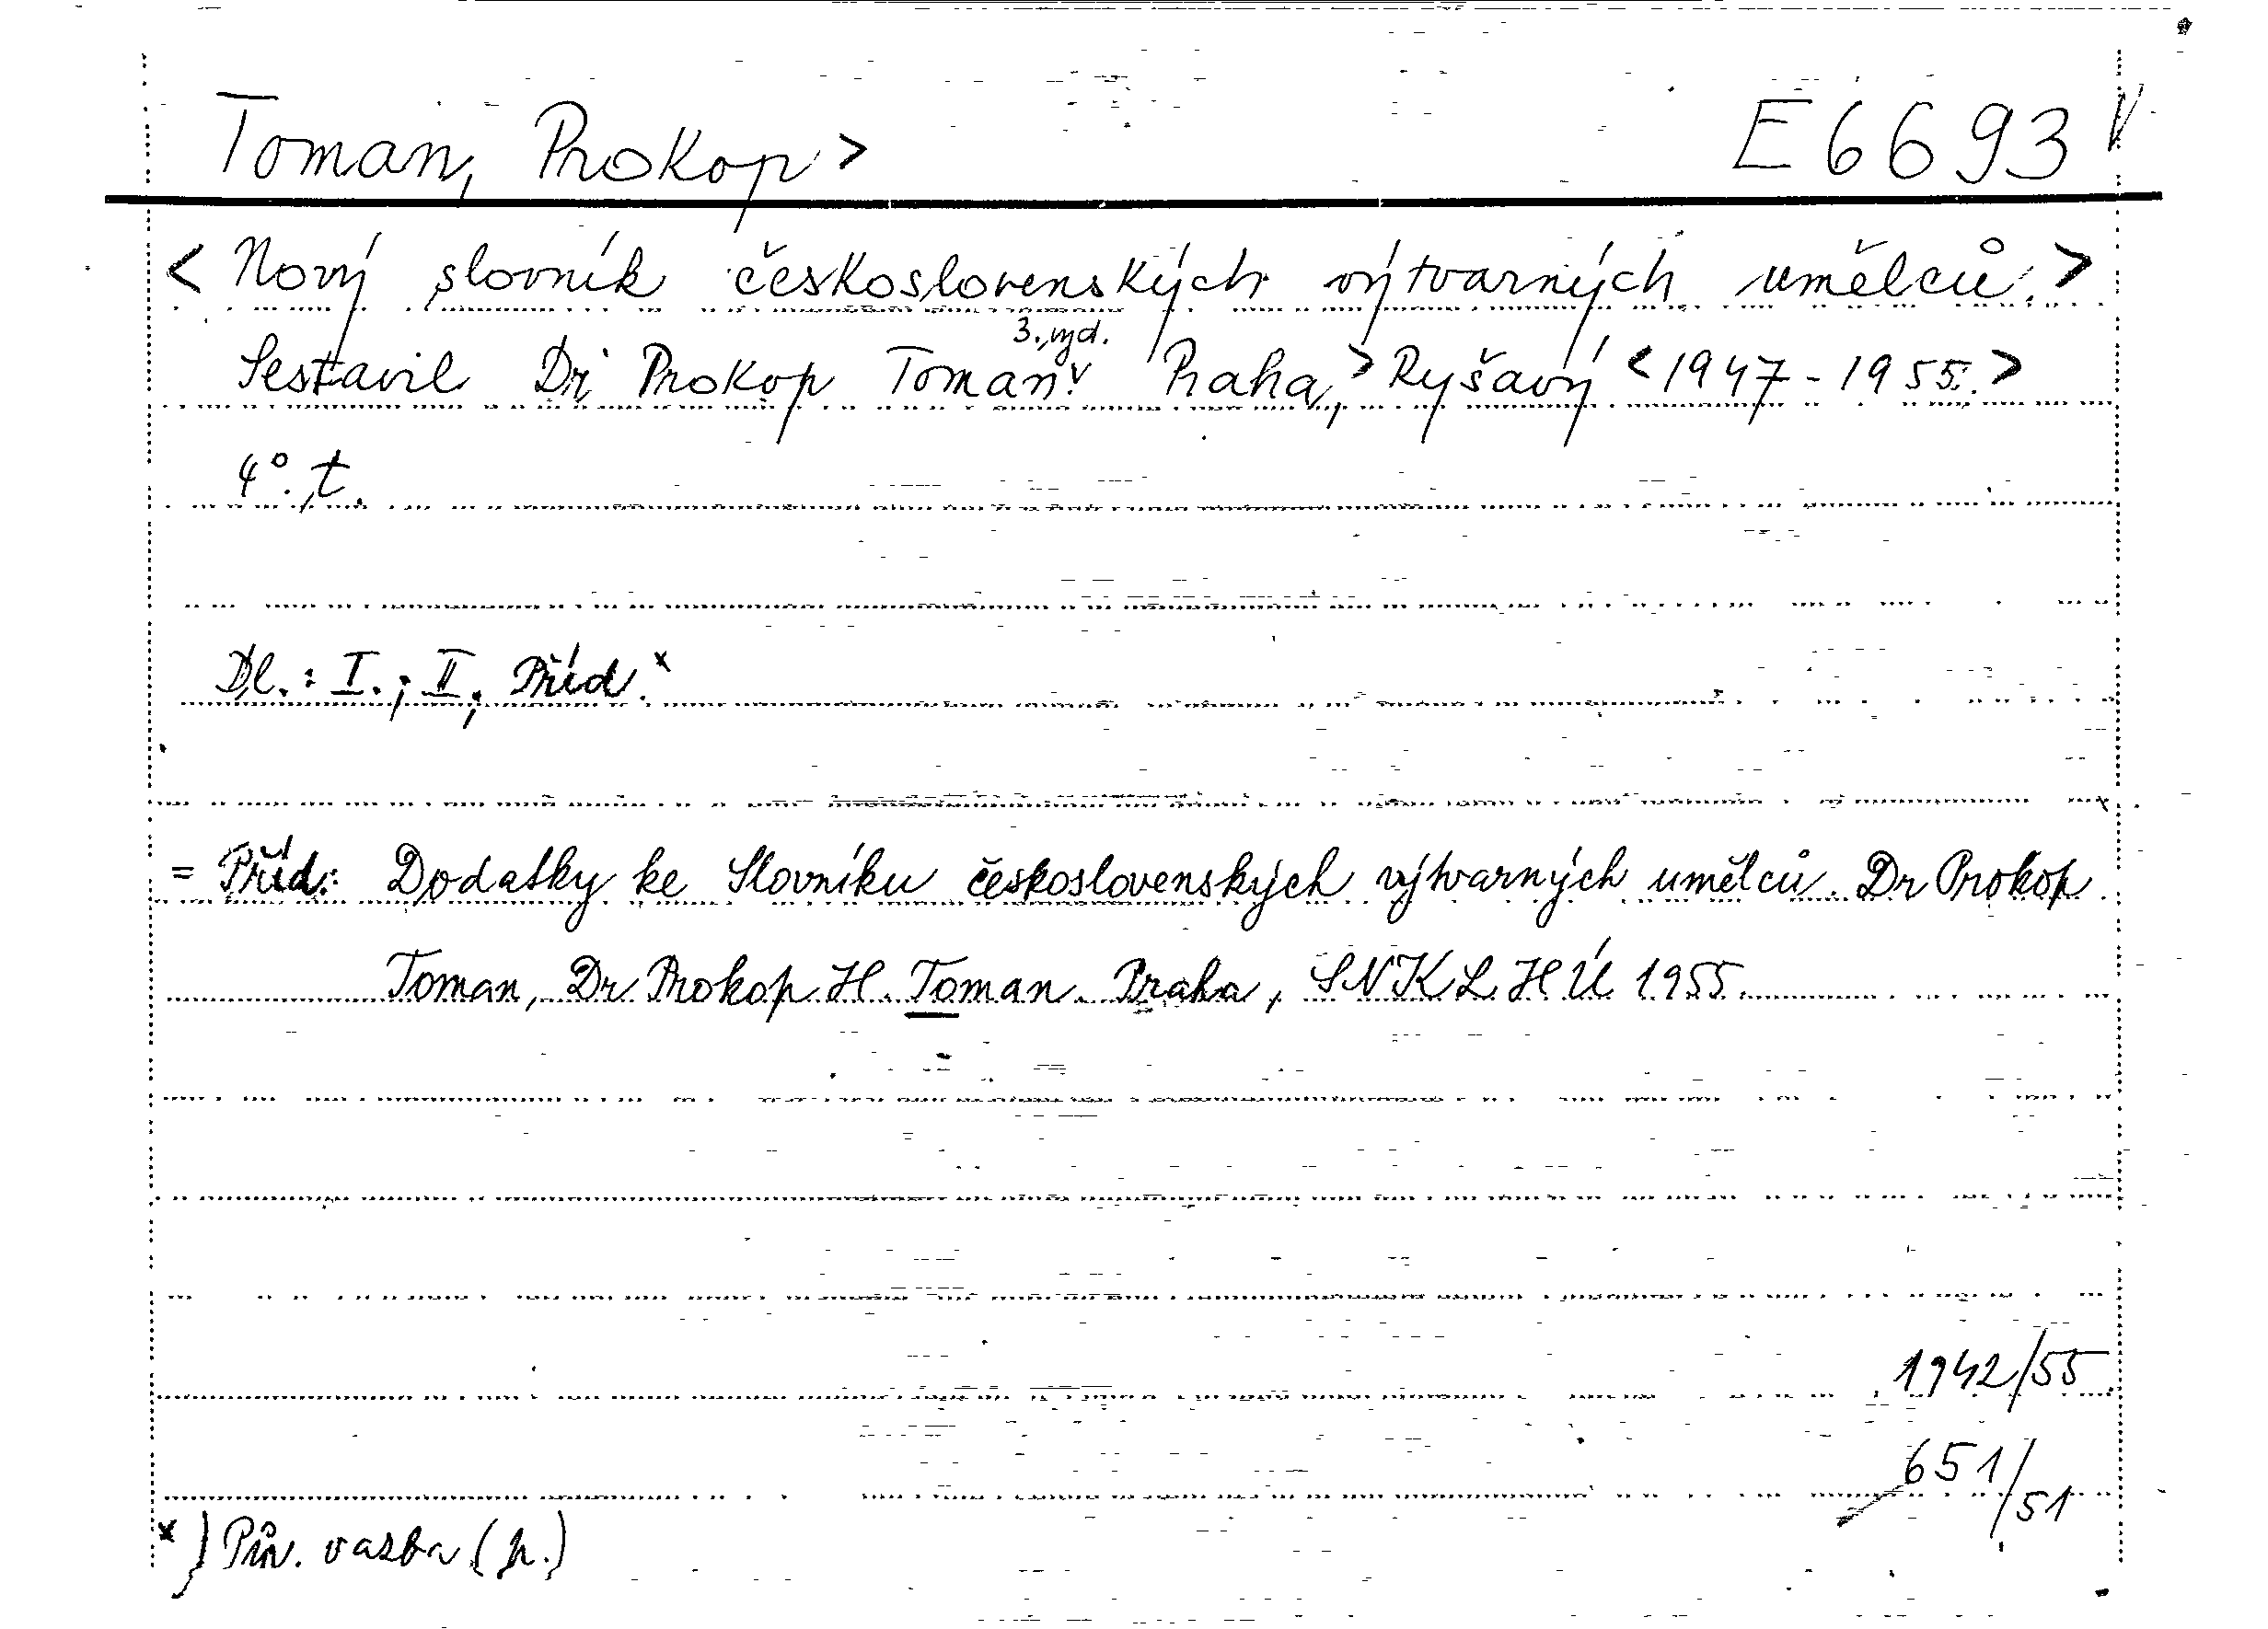 Toman, Prokop > E 6693
< Nový slovník československých výtvarných umělců. >
3. vyd.
Sestavil Dr Prokop Toman. Praha, > Ryšavý < 1947-1955. >
4°. t.
Dl.: I.; II; Příd. x
= Příd.: Dodatky ke Slovníku československých výtvarných umělců. Dr Prokop
Toman, Dr Prokop H. Toman. Praha, SNKLHÚ 1955.
1942/55
651/51
x) Pův. vazba (p.)